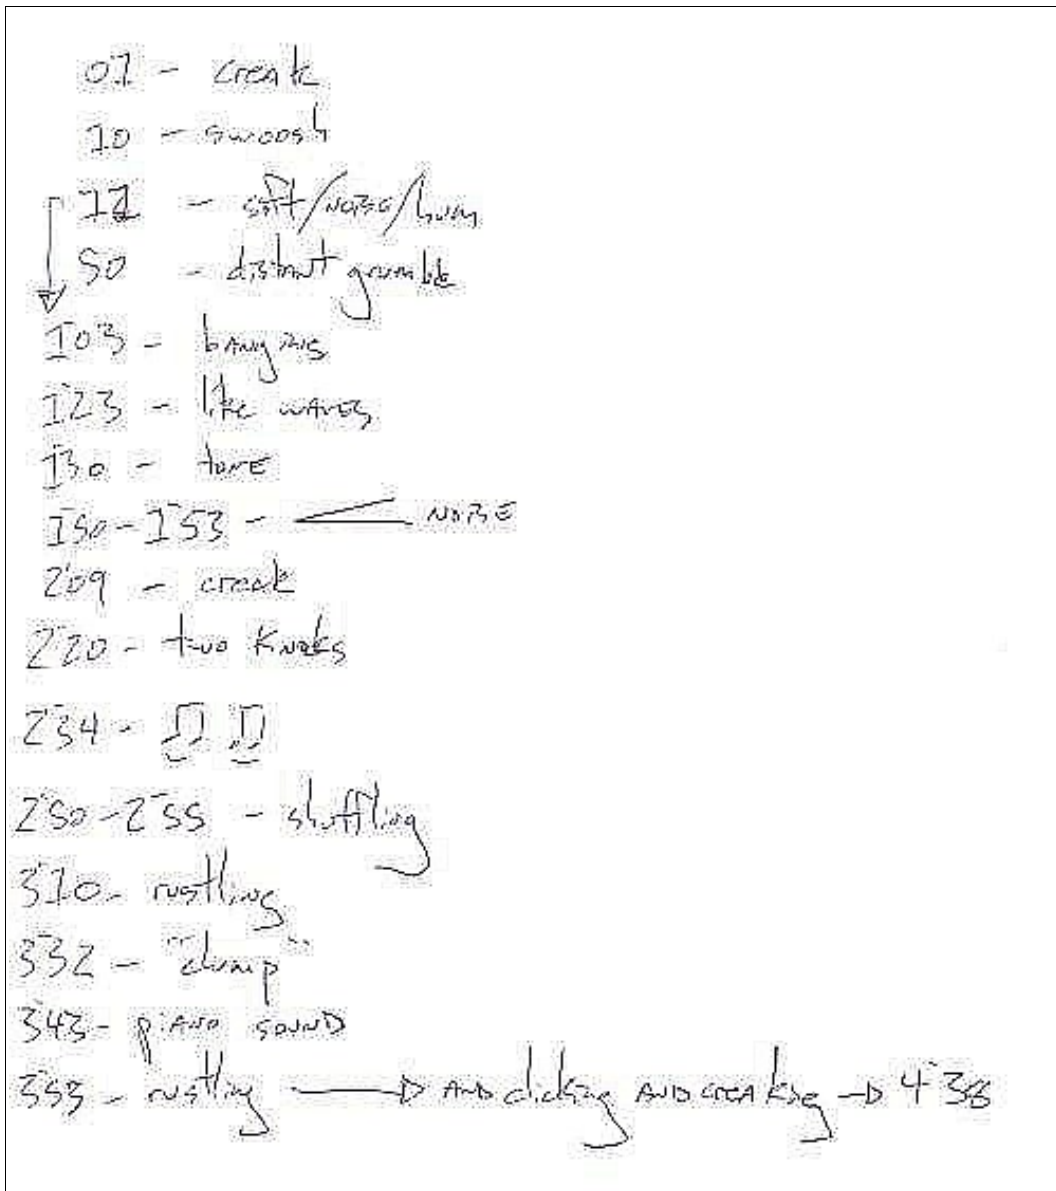 01 - creak
10 - swoosh
11 - soft/NOISE/hum
50 - distant grumble
1'03 - bANgING
1'23 - like WAVES
1'30 - tonE
1'50 - 1'53 - NOISE
2'09 - creak
2'20 - two Knoks
2'34 -
2'50 - 2'55 - shuffling
3'10 - rustling
3'32 - "clump"
3'43 - piANO SOUND
3'53 - rustling AND clicking AND CREAKing 4'38